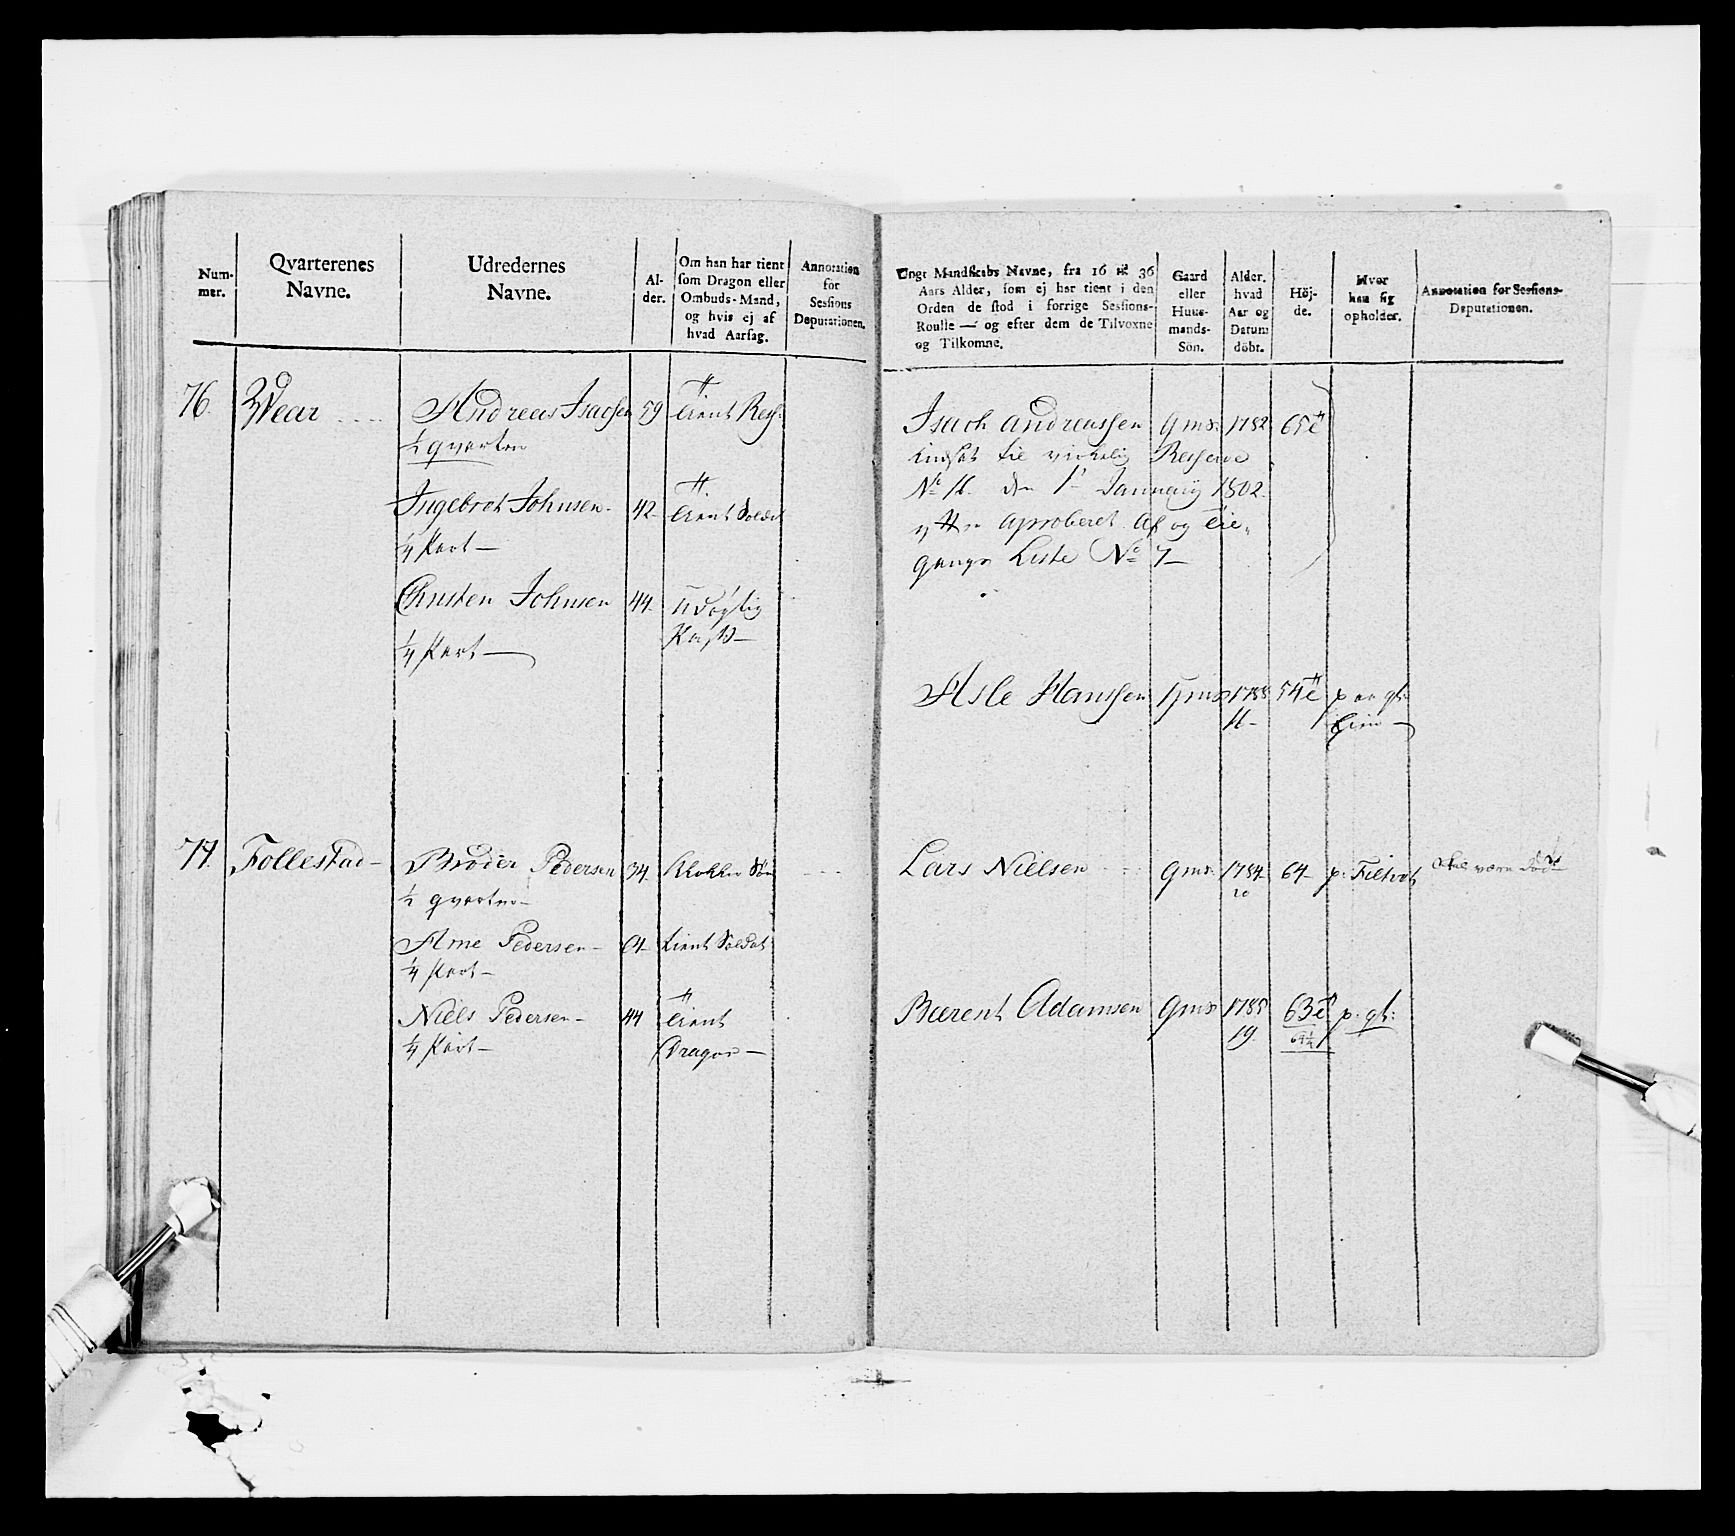 Num-
mer.
Qvarterenes
Navne.
Udredernes
Navne.
Al-
der.
Om han har tient
som Dragon eller
Ombuds-Mand,
og hvis ej af
hvad Aarsag.
Annotation
for
Sessions
Deputationen.
76.
Wear
Andreas Isachsen 59 tient Res:
½ qvarteer
Ingebret Johnsen 42 tient Soldat
¼ Part
Christen Johnsen 44 Udøgtig
¼ Part
77.
Follestad
Broder Pedersen 34 Klokker Søn
½ qvarteer
Arne Pedersen tient Soldat
¼ Part
Niels Pedersen 44 tient
¼ Part Dragon
Ungt Mandskabs Navne, fra 16 til 36
Aars Alder, som ej har tient i den
Orden de stod i forrige Sessions-
Roulle — og efter dem de Tilvoxne
og Tilkomne.
Gaard
eller
Huus-
mands-
Sön.
Alder,
hvad
Aar og
Datum
döbt.
Höj-
de.
Hvor
han sig
opholder.
Annotation for Sessions-
Deputationen.
Isach Andreassen Gms: 1782 65
indsat til virkelig Reserve
No 16. den 1t January 1802.
Aproberet Af og til
gangs Liste No 7
Asle Hanssen 1788 54 p
16
Lars Nielsen Gms: 1784 64 p: Filtvet skal være død
20
Bærent Adamsen Gms: 1785 63 p: gt:
19 64½